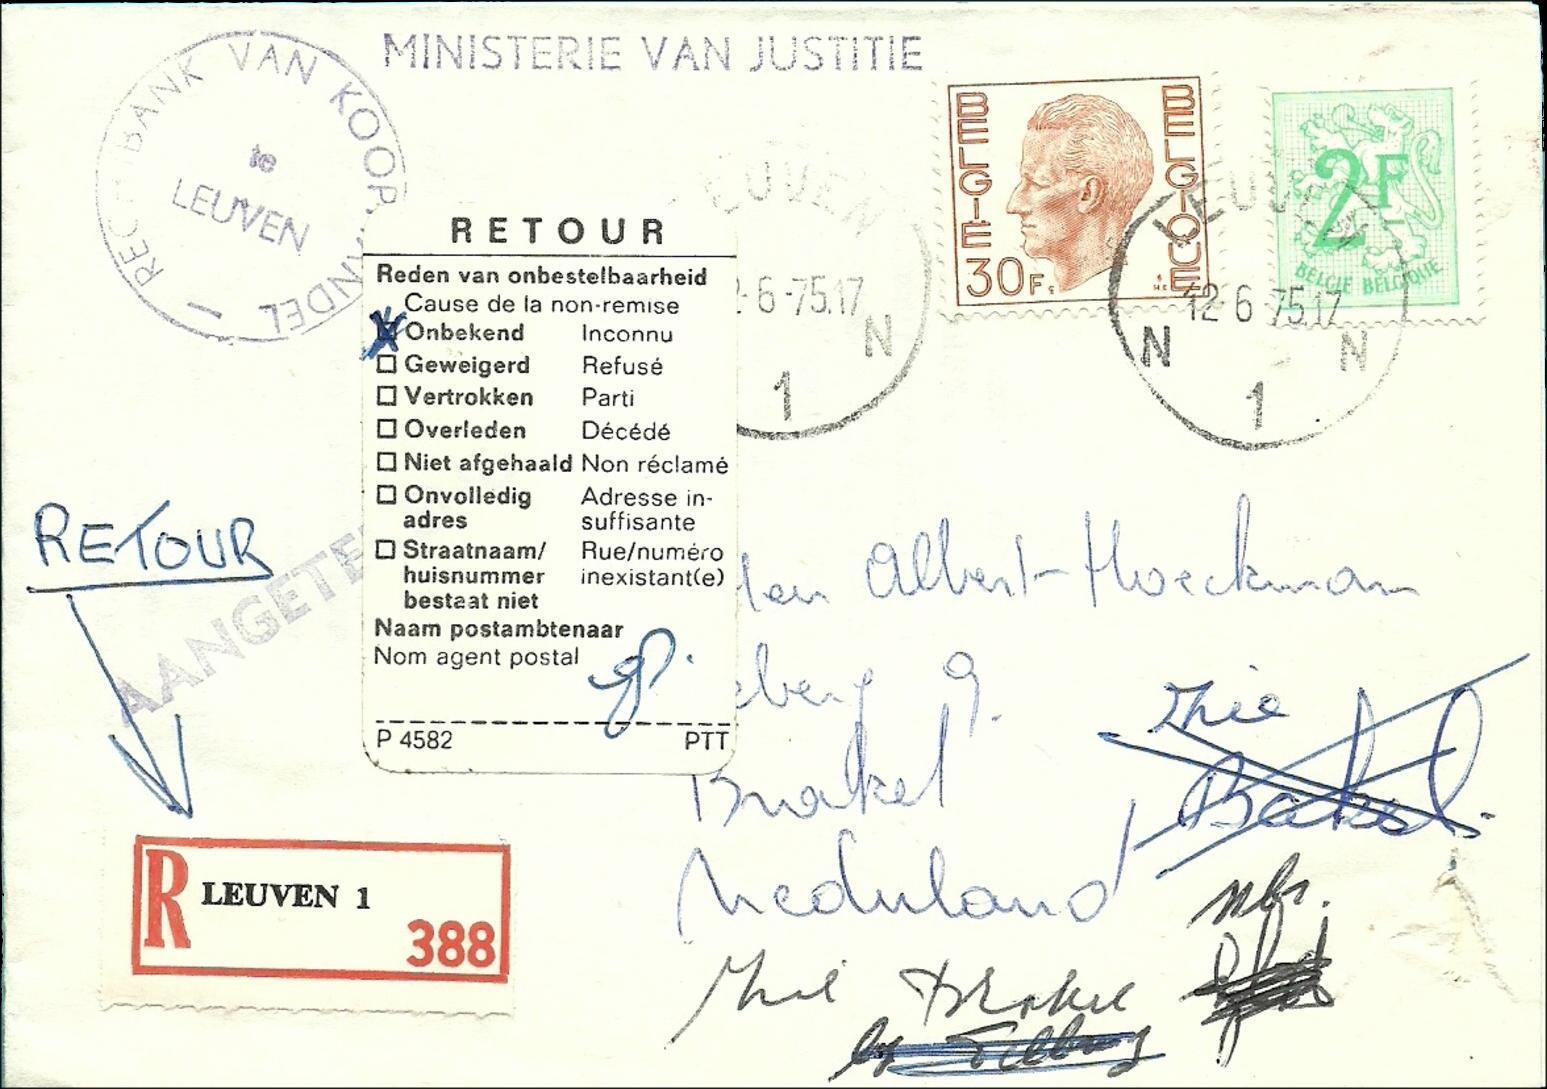 MINISTERIE VAN JUSTITIE
RECHTBANK VAN KOOPHANDEL
te
LEUVEN
BELGIE BELGIQUE
30F
2F
BELGIE BELGIQUE
LEUVEN
2-6-75.17
N
1
LEUVEN
12 6 75.17
N N
1
RETOUR
Reden van onbestelbaarheid
Cause de la non-remise
Onbekend Inconnu
Geweigerd Refusé
Vertrokken Parti
Overleden Décédé
Niet afgehaald Non réclamé
Onvolledig adres Adresse in-suffisante
Straatnaam/ Rue/numéro
huisnummer inexistant(e)
bestaat niet
Naam postambtenaar
Nom agent postal
P 4582 PTT
RETOUR
AANGETE
Albert Hoeckman
9.
Brakel
Zie
Bakel.
Nederland
nbr.
R LEUVEN 1
388